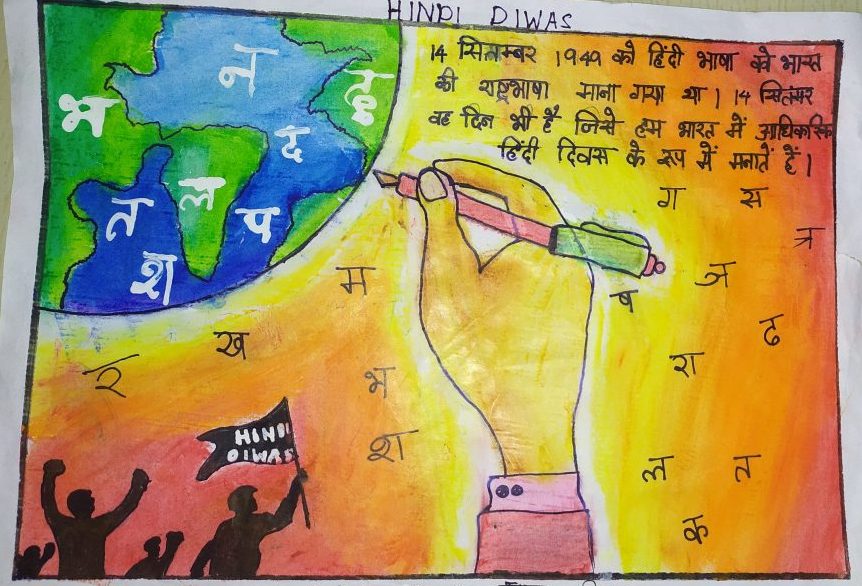 HINDI DIWAS
14 सितम्बर 1949 को हिंदी भाषा को भारत
की राष्ट्रभाषा माना गया था। 14 सितम्बर
वह दिन भी है जिसे हम भारत में आधिकारिक
हिंदी दिवस के रूप में मनातें हैं।
न
भ
द
ल
त
प
श
ग
स
त्र
म
ज
ष
ढ
ख
रा
भ
श
HINDI
DIWAS
ल
त
क